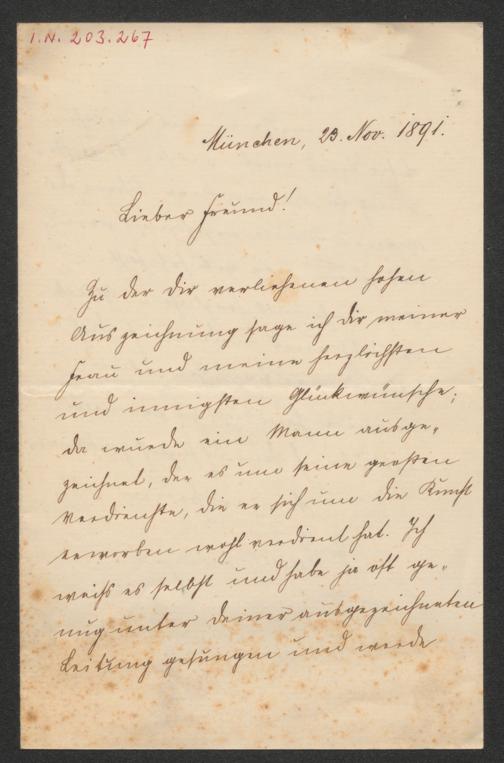 I.N. 203.267
München, 23. Nov. 1891.
Lieber Freund!
Zu der Dir verliehenen hohen
Auszeichnung sage ich Dir meiner
Frau und meine herzlichsten
und innigsten Glückwünsche;
da wurde ein Mann ausge-
zeichnet, der es um seine großen
Verdienste, die er sich um die Kunst
erworben wohl verdient hat. Ich
weiß es selbst und habe ja oft ge-
nug unter Deiner ausgezeichneten
Leitung gesungen und werde